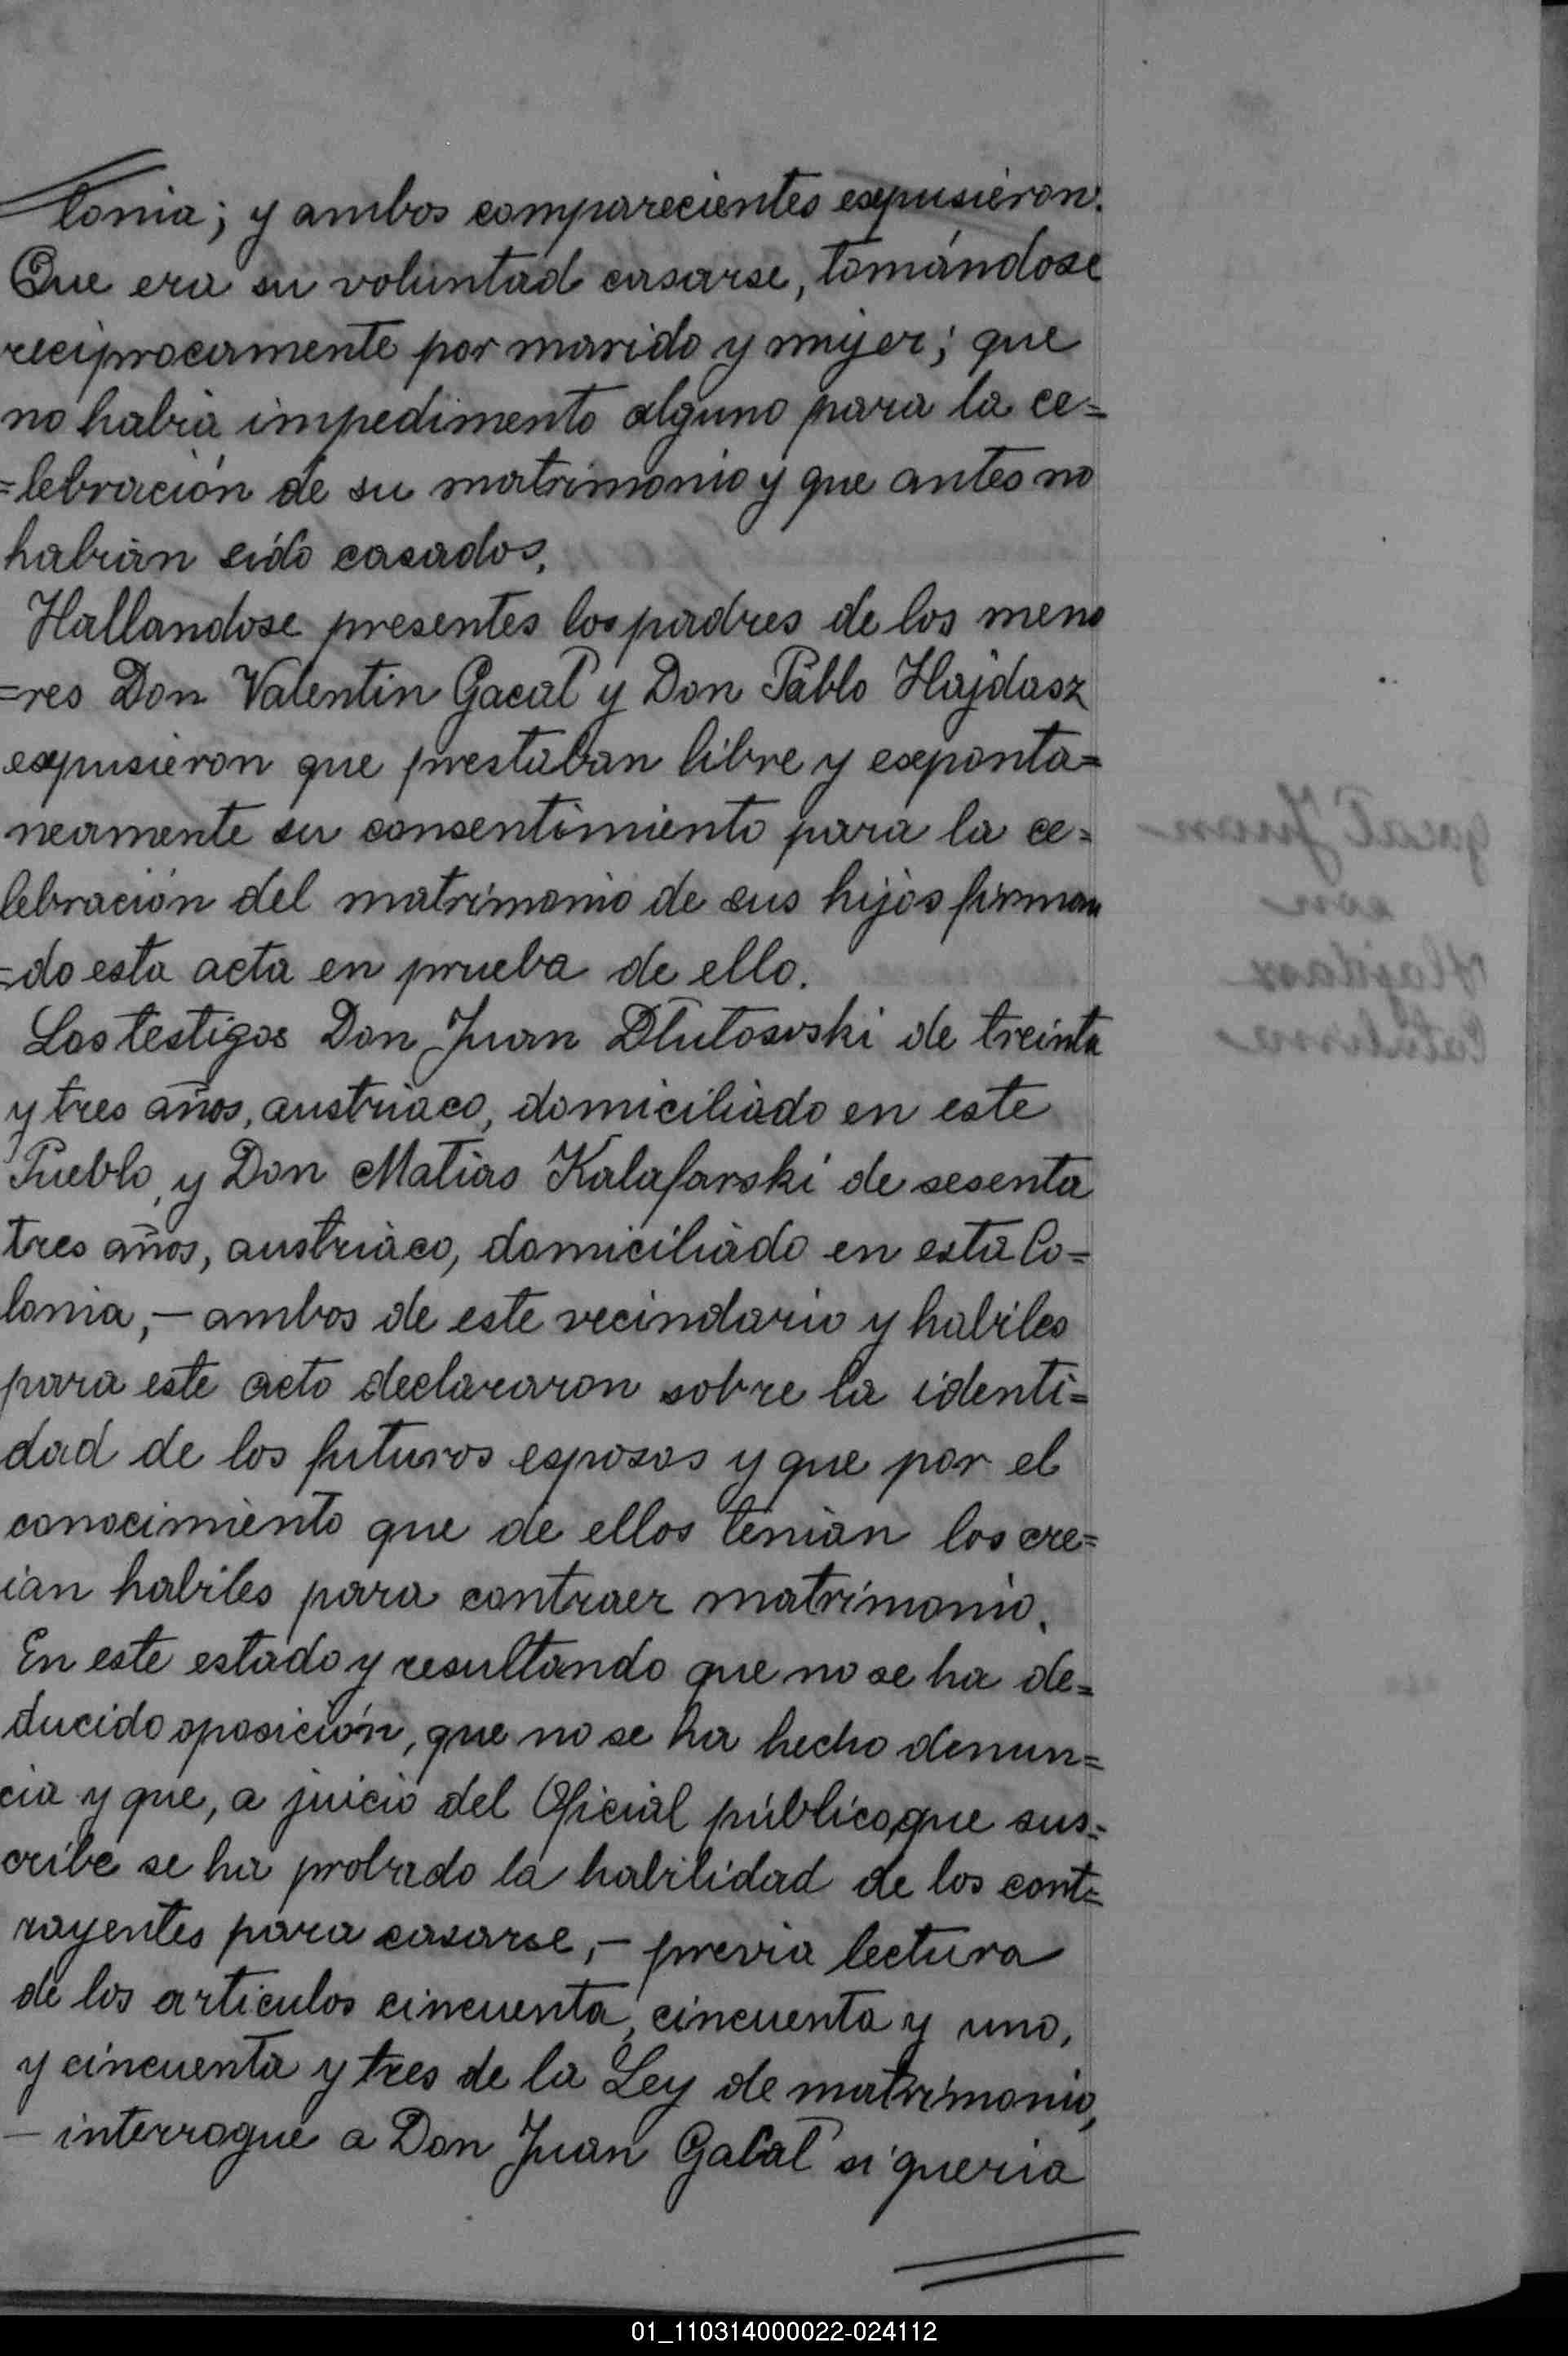 lonia; y ambos comparecientes expusieron:
Que era su voluntad casarse, tomándose
reciprocamente por marido y mujer; que
no habia impedimento alguno para la ce=
=lebración de su matrimonio y que antes no
habian sido casados.
Hallandose presentes los padres de los meno
=res Don Valentin Gacal y Don Pablo Hajdasz
expusieron que prestaban libre y exponta=
neamente su consentimiento para la ce=
lebración del matrimonio de sus hijos firman
=do esta acta en prueba de ello.
Los testigos Don Juan Dlutowski de treinta
y tres años, austriaco, domiciliado en este
Pueblo, y Don Matias Kalafarski de sesenta
tres años, austriaco, domiciliado en esta Co=
lonia,– ambos de este vecindario y habiles
para este acto declararon sobre la identi=
dad de los futuros esposos y que por el
conocimiento que de ellos tenian los cre=
ian habiles para contraer matrimonio.
En este estado y resultando que no se ha de=
ducido oposición, que no se ha hecho denun=
cia y que, a juicio del Oficial público que sus=
cribe se ha probado la habilidad de los cont=
rayentes para casarse,– previa lectura
de los articulos cincuenta, cincuenta y uno,
y cincuenta y tres de la Ley de matrimonio,
– interrogué a Don Juan Gacal si queria
Gacal Juan
con
Hajdasz
Catalina
01_110314000022-024112